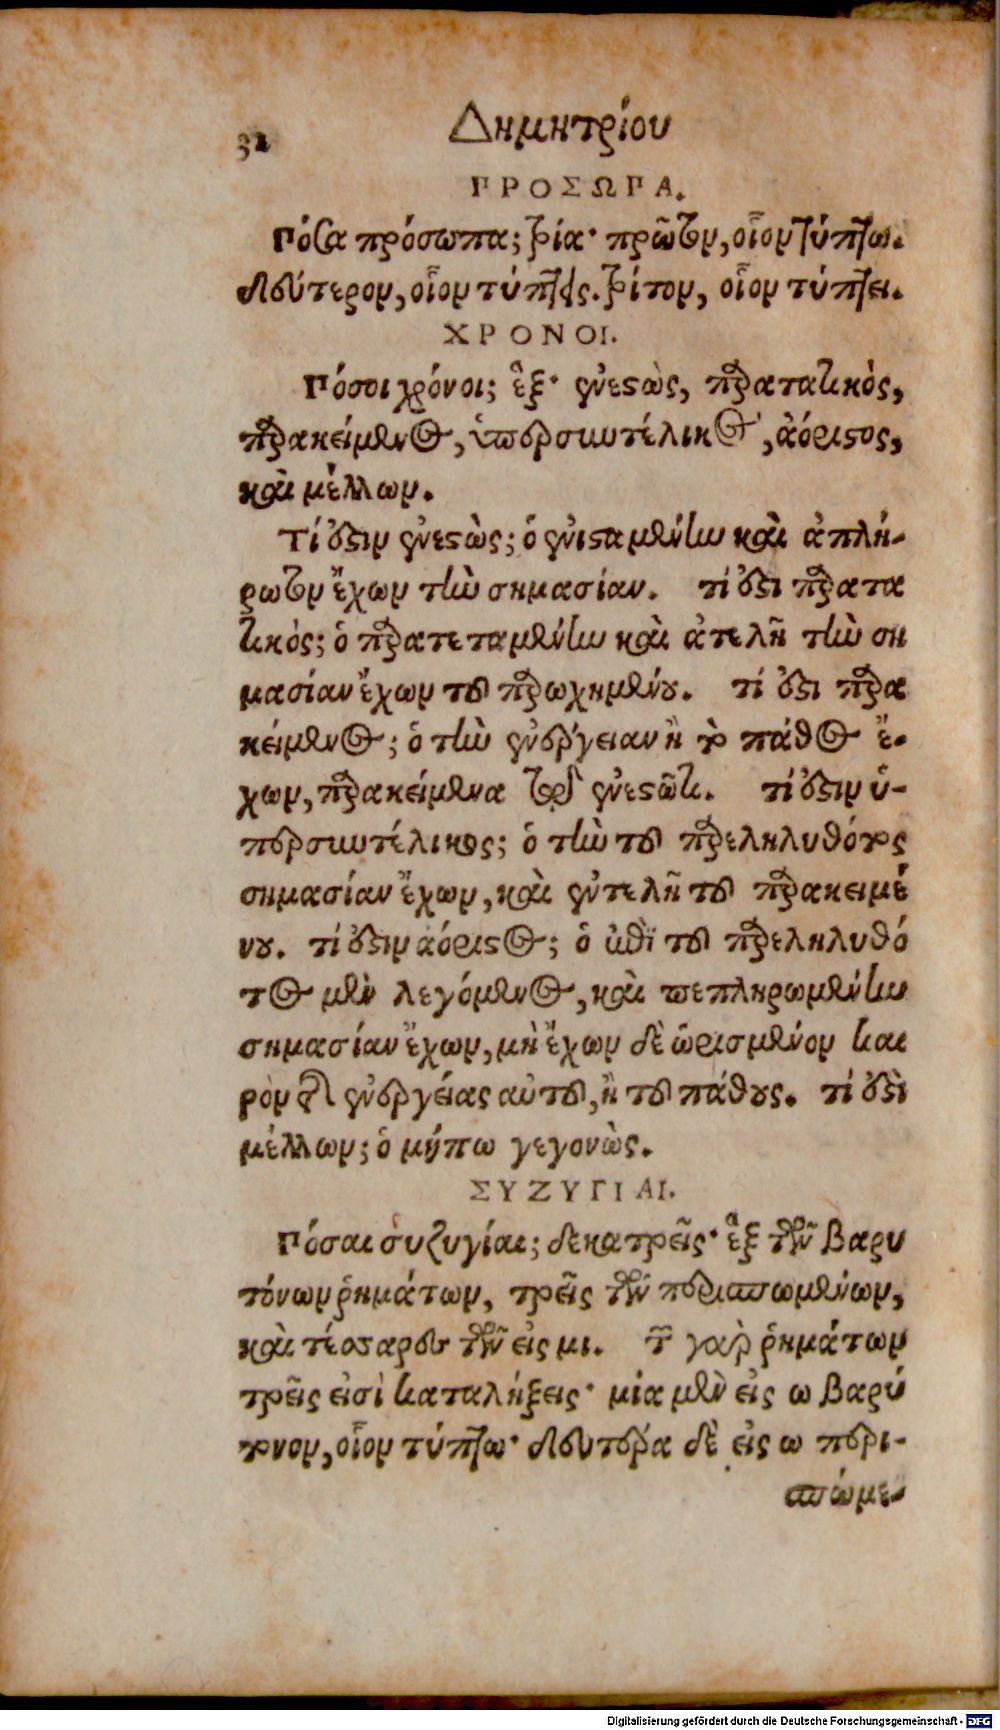 32 Δημητρίου
ΠΡΟΣΩΠΑ.
Πόσα πρόσωπα; τρία· πρῶτον, οἷον τύπτω.
δεύτερον, οἷον τύπτεις. τρίτον, οἷον τύπτει.
ΧΡΟΝΟΙ.
Πόσοι χρόνοι; ἓξ· ἐνεστὼς, παρατατικὸς,
παρακείμενος, ὑπερσυντέλικος, ἀόριστος,
καὶ μέλλων.
Τί ὅστιν ἐνεστὼς; ὁ ἐνισταμένην καὶ ἀπλή-
ρωτον ἔχων τὴν σημασίαν. τί ὅστι παρατα
τικὸς; ὁ παρατεταμένην καὶ ἀτελῆ τὴν ση
μασίαν ἔχων τοῦ παρωχημένου. τί ὅστι παρα
κείμενος; ὁ τὴν ἐνέργειαν ἢ τὸ πάθος ἔ-
χων, παρακείμενα τῷ ἐνεστῶτι. τί ὅστιν ὑ-
περσυντέλικος; ὁ τὴν τοῦ παρεληλυθότος
σημασίαν ἔχων, καὶ ἐντελῆ τοῦ παρακειμέ
νου. τί ὅστιν ἀόριστος; ὁ ἐπὶ τοῦ παρεληλυθό
τος μὲν λεγόμενος, καὶ πεπληρωμένην
σημασίαν ἔχων, μὴ ἔχων δὲ ὡρισμένον και
ρὸν τῆς ἐνεργείας αὐτοῦ, ἢ τοῦ πάθους. τί ὅστὶ
μέλλων; ὁ μήπω γεγονὼς.
ΣΥΖΥΓΙΑΙ.
Πόσαι συζυγίαι; δεκατρεῖς· ἓξ τῶν βαρυ
τόνων ῥημάτων, τρεῖς τῶν περισπωμένων,
καὶ τέσσαρες τῶν εἰς μι. τῶν γὰρ ῥημάτων
τρεῖς εἰσὶ καταλήξεις· μία μὲν εἰς ω βαρύ
τονον, οἷον τύπτω· δευτέρα δὲ εἰς ω περι-
σπώμε-
Digitalisierung gefördert durch die Deutsche Forschungsgemeinschaft - DFG